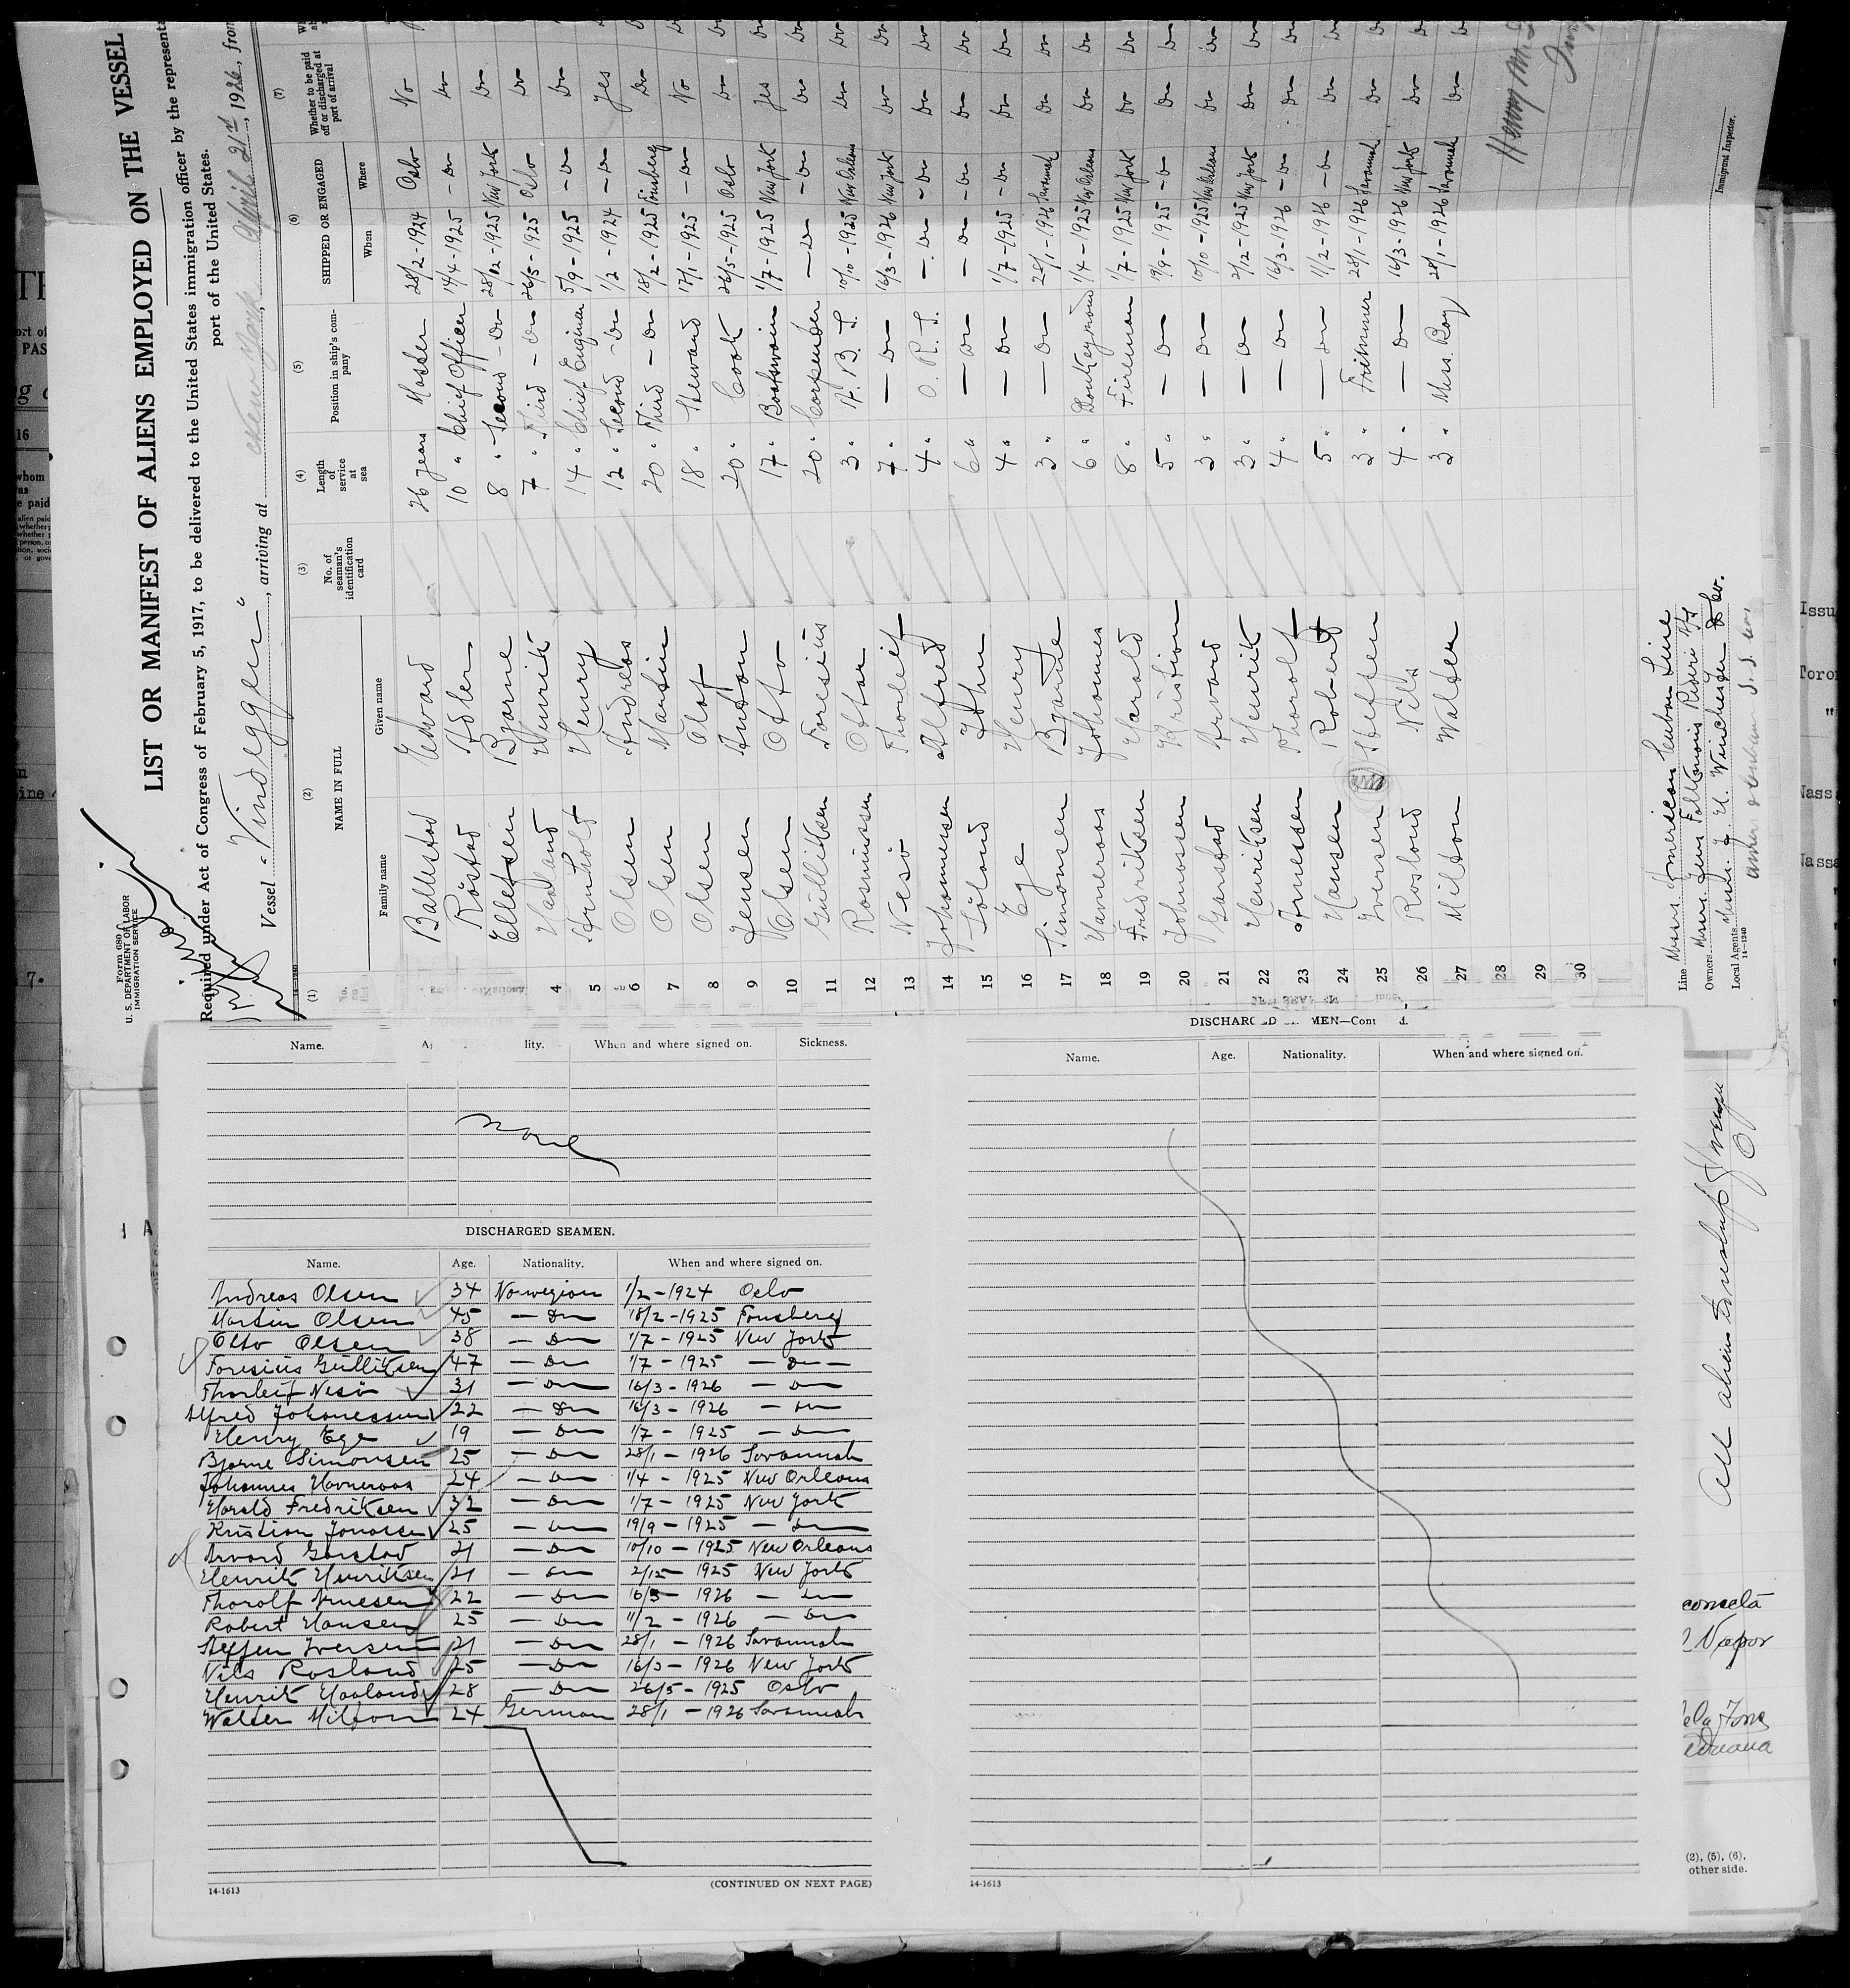 Form 680
U. S. DEPARTMENT OF LABOR
IMMIGRATION SERVICE
LIST OR MANIFEST OF ALIENS EMPLOYED ON THE VESSEL
Required under Act of Congress of February 5, 1917, to be delivered to the United States immigration officer by the representa
port of the United States.
Vessel "Vindeggen", arriving at New York April 21st, 1926, from
(1) (2) (3) (4) (5) (6) (7)
NAME IN FULL No. of seaman's identification card Length of service at sea Position in ship's company SHIPPED OR ENGAGED Whether to be paid off or discharged at port of arrival
Family name Given name When Where
Ballestad Edvard 26 years Master 28/2-1924 Oslo No
Röstad Adler 10 " Chief Officer 14/4-1925 - Do Do
Ellefsen Bjarne 8 " Second - Do 28/12-1925 New York Do
4 Haaland Henrik 7 " Third - Do 26/5-1925 Oslo Do
5 Henry 14 " Chief Engineer 5/9-1925 - Do Do
6 Olsen Andreas 12 " Second - Do 1/2-1924 - Do Yes
7 Olsen Martin 20 " Third - Do 18/2-1925 Tönsberg Do
8 Olsen Olaf 18 " Steward 17/1-1925 - Do No
9 Jensen Anton 20 " Cook 26/5-1925 Oslo Do
10 Olsen Otto 17 " Boatswain 1/7-1925 New York Yes
11 Gullitksen Toresius 20 " Carpenter - Do - Do Do
12 Rasmussen Ottar 3 " A. B. S. 10/10-1925 New Orleans Do
13 Nesö Thorleif 7 " - Do - 16/3-1926 New York Do
14 Johannesen Alfred 4 " O. R. S. - Do - Do Do
15 Söland John 6 " - Do - - Do - Do Do
16 Ege Henry 4 " - Do - 1/7-1925 - Do Do
17 Simonsen Bjarne 3 " - Do - 28/1-1926 Savannah Do
18 Havneraas Johannes 6 " Donkeyman 1/4-1925 New Orleans Do
19 Fredriksen Harald 8 " Fireman 1/7-1925 New York Do
20 Johnassen Kristian 5 " - Do - 19/9-1925 - Do Do
21 Garstad Arvard 3 " - Do - 10/10-1925 New Orleans Do
22 Henriksen Henrik 3 " - Do - 2/12-1925 New York Do
23 Arnessen Thorolf 4 " - Do - 16/3-1926 - Do Do
24 Hansen Robert 5 " - Do - 11/2-1926 - Do Do
25 Iversen Steffen 3 " Trimmer 28/1-1926 Savannah Do
26 Rosland Nils 4 " - Do - 16/3-1926 New York Do
27 Milton Walter 3 " Mess Boy 28/1-1926 Savannah Do
28
29
30
Henry M.
Line Messrs. American Cuban Line
Owners Messrs. Jens
Local Agents Messrs. J. H. Winchester & Co.
14-1240
Immigrant Inspector.
Name. When and where signed on. Sickness.
None
DISCHARGED SEAMEN.
Name. Age. Nationality. When and where signed on.
Andreas Olsen 34 Norwegian 1/2-1924 Oslo
Martin Olsen 45 - Do 18/2-1925 Tonsberg
Otto Olsen 38 - Do 1/7-1925 New York
Toresius Gullitksen 47 - Do 1/7-1925 - Do -
Thorleif Nesö 31 - Do 16/3-1926 - Do
Alfred Johanessen 22 - Do 16/3-1926 - Do
Henry Ege 19 - Do 1/7-1925 - Do
Bjarne Simonsen 25 - Do 28/1-1926 Savannah
Johannes Havneraas 24 - Do 1/4-1925 New Orleans
Harald Fredriksen 32 - Do 1/7-1925 New York
Kristian Jonassen 25 - Do 19/9-1925 - Do
Arvard Garstad 21 - Do 10/10-1925 New Orleans
Henrik Henriksen 21 - Do 2/12-1925 New York
Thorolf Arnesen 22 - Do 16/3-1926 - Do
Robert Hansen 25 - Do 11/2-1926 - Do
Steffen Iversen 21 - Do 28/1-1926 Savannah
Nils Rosland 25 - Do 16/3-1926 New York
Henrik Haaland 28 - Do 26/5-1925 Oslo
Walter Milton 24 German 28/1-1926 Savannah
14-1613 (CONTINUED ON NEXT PAGE)
DISCHARGED SEAMEN—Cont d.
Name. Age. Nationality. When and where signed on.
14-1613
All aliens
Vapor
(2), (5), (6),
other side.